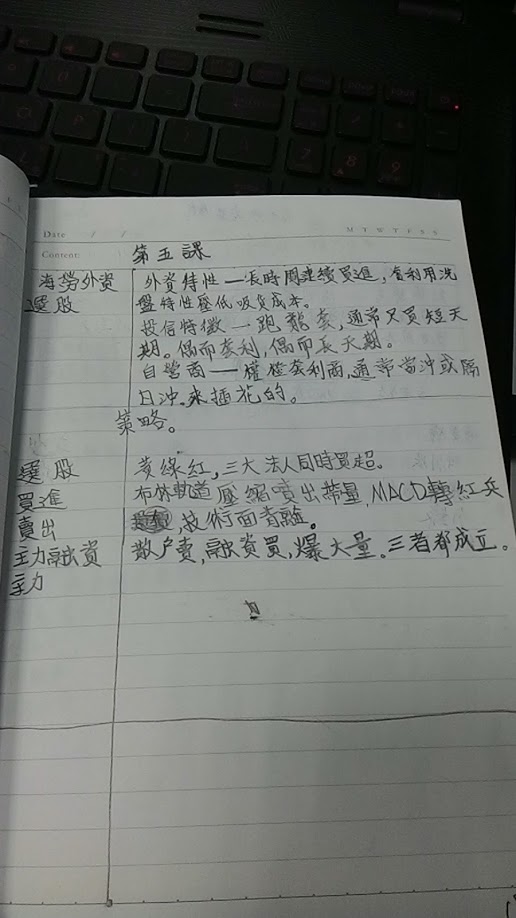 Date / /
M T W T F S S
Content:
第五課
海勞外資
選股
外資特性一長時間連續買進,會利用洗
盤特性壓低吸貨成本。
投信特徵一跑龍套,通常又買短天
期。偶而套利,偶而長天期。
自營商一權證套利商,通常當沖或隔
日沖.來插花的。
策略。
選股
黃綠紅,三大法人同時買超。
買進
布林軌道壓縮噴出帶量,MACD轉紅兵
賣出
,技術面背離。
主力融資
散戶賣,融資買,爆大量。三者都成立。
主力